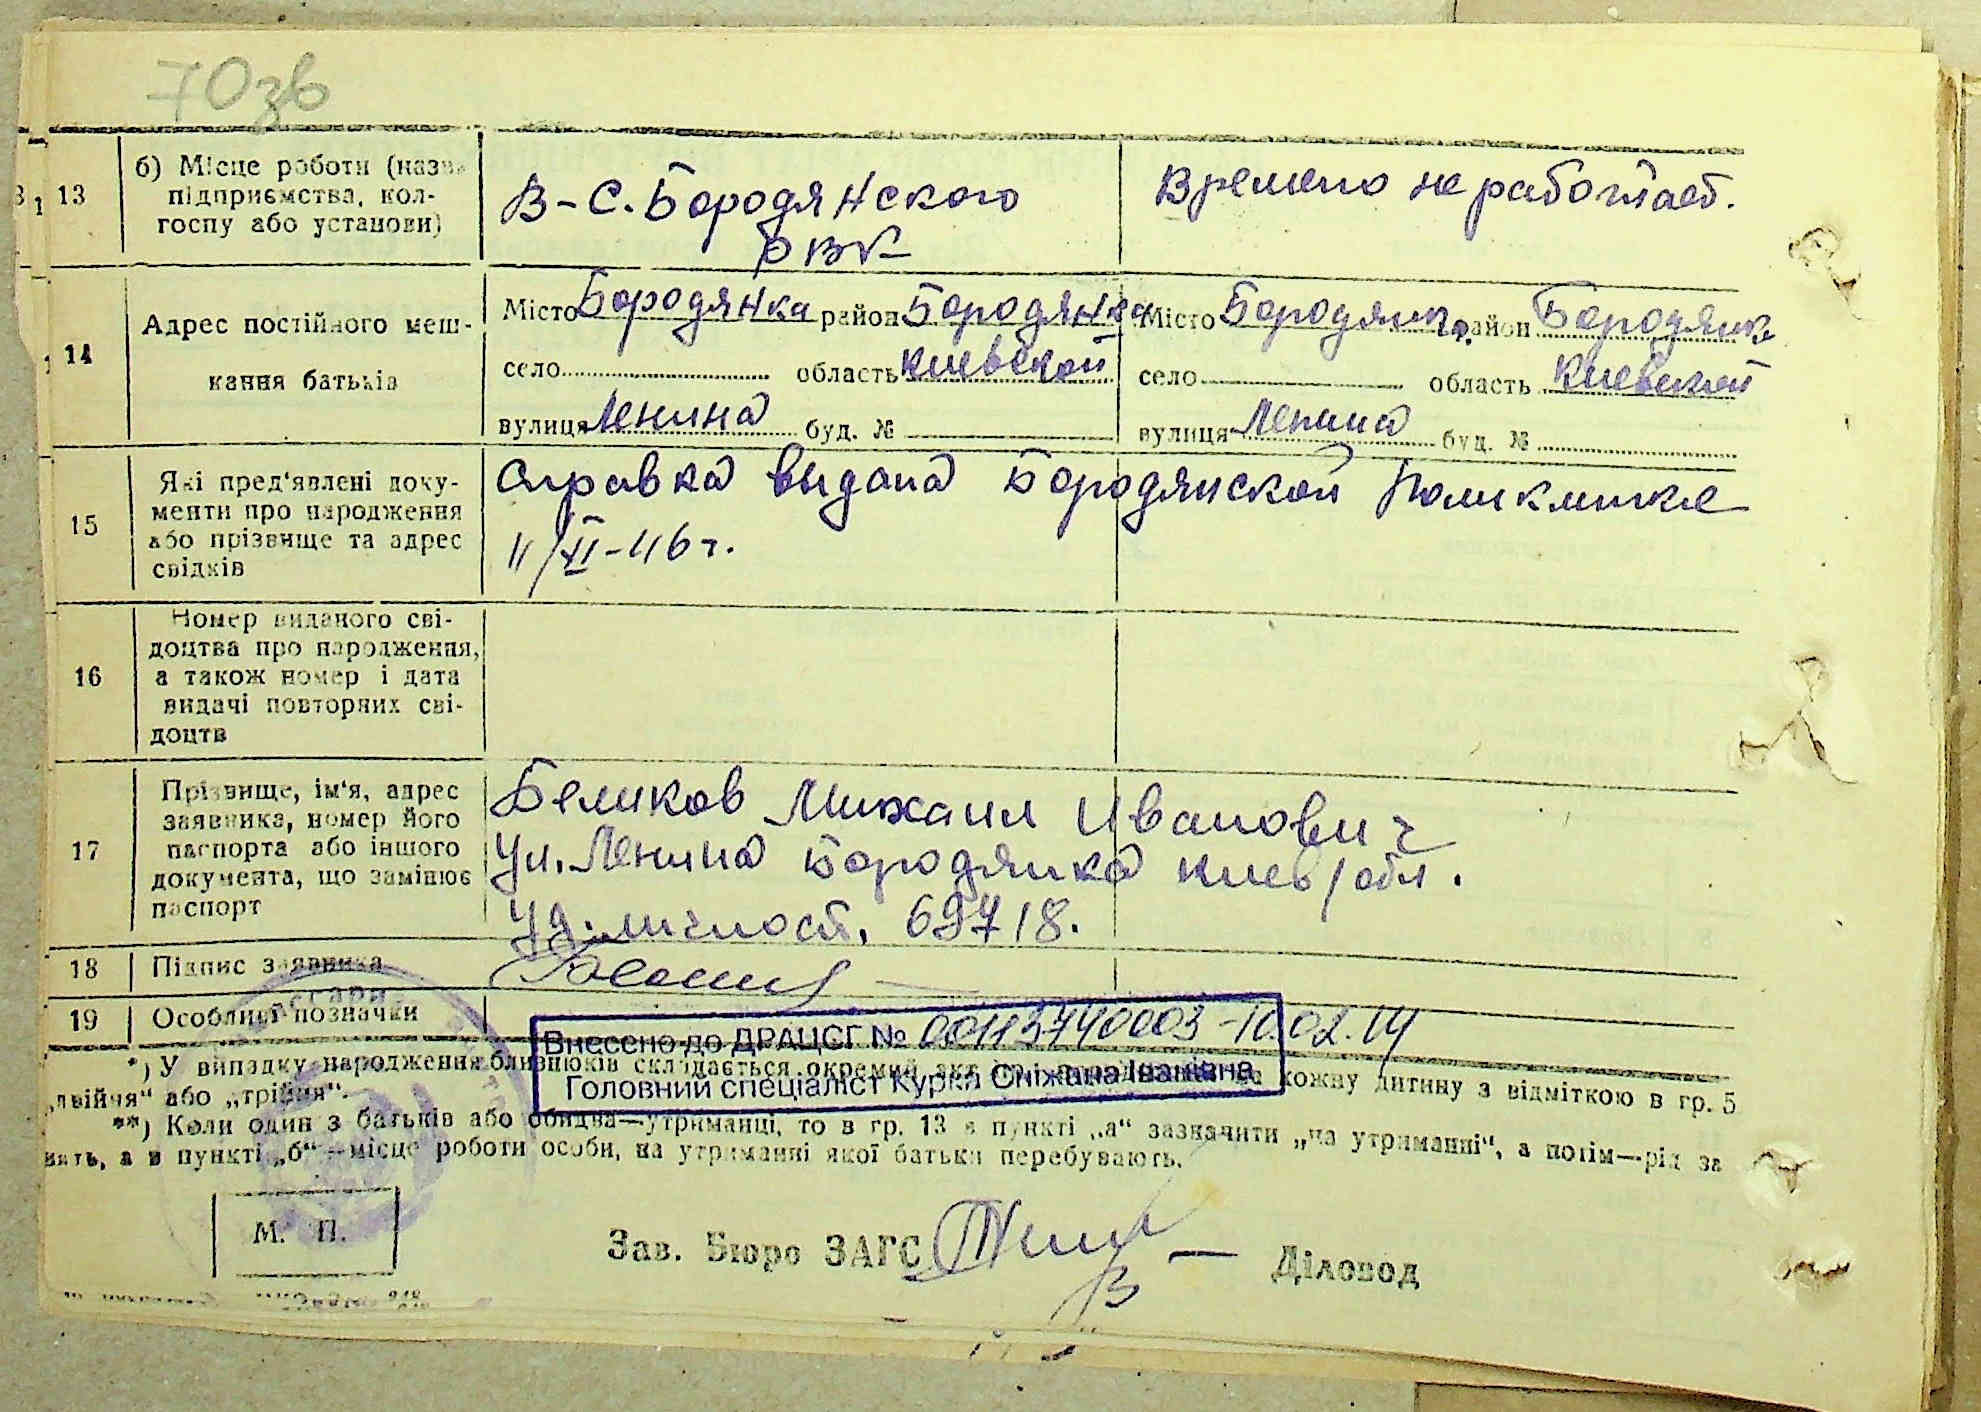 70зв
13 б) Місце роботи (назва
підприємства, кол-
госпу або установи)
В-С. Бородянского
РВК
Времено не работает.
14 Адрес постійного меш-
кання батьків
Місто Бородянка район Бородянка
село область Киевской
вулиця Ленина буд. №
Місто Бородянка район Бородянка
село область Киевской
вулиця Ленина буд. №
15 Які пред'явлені доку-
менти про народження
або прізвище та адрес
свідків
Справка выдана Бородянской Поликлинке
16 Номер виданого сві-
доцтва про народження,
а також номер і дата
видачі повторних сві-
доцтв
17 Прізвище, ім'я, адрес
заявника, номер його
паспорта або іншого
документа, що замінює
паспорт
Беликов Михаил Иванович
ул. Ленина Бородянка Киев/обл.
Уд. личност. 69718.
18 Підпис заявника
19 Особливі позначки
Внесено до ДРАЦСГ № 00113740003 - 10.02.14
Головний спеціаліст Курка Сніжана Іванівна
*) У випадку народження близнюків складається окремий акт на кожну дитину з відміткою в гр. 5
„двійня“ або „трійня“.
**) Коли один з батьків або обидва—утриманці, то в гр. 13 в пункті „а“ зазначити „на утриманні“, а потім—рід за
нять, а в пункті „б“—місце роботи особи, на утриманні якої батьки перебувають.
М. П.
Зав. Бюро ЗАГС
Діловод